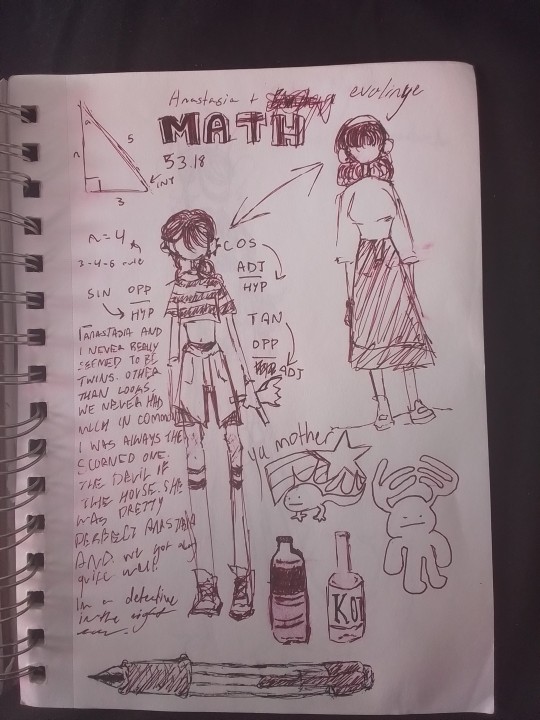 Anastasia + evolinge
MATH
53.18
5
n
3
INT
n=4
COS
ADJ
HYP
SIN OPP
HYP
TAN
OPP
ADJ
ANASTASIA AND
I NEVER REALLY
SEEMED TO BE
TWINS. OTHER
THAN LOOKS.
WE NEVER HAD
MUCH IN COMMON
I WAS ALWAYS THE
SCORNED ONE.
THE DEVIL IF
THE HOUSE. SHE
WAS PRETTY
PERFECT ANASTASIA
AND we got along
quite well.
Im a detective
in the right
ya mother
KOT